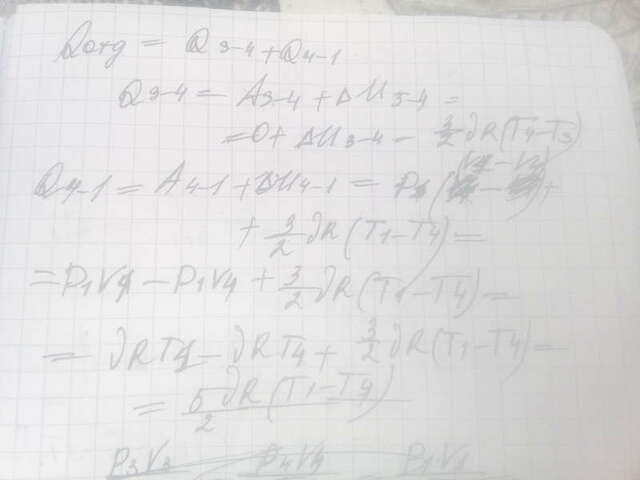 Qотд = Q3-4 + Q4-1
Q3-4 = A3-4 + ΔU3-4 =
= 0 + ΔU3-4 = 3/2 νR(T4-T3)
Q4-1 = A4-1 + ΔU4-1 = P1(V1-V4) +
+ 3/2 νR(T1-T4) =
= P1V1 - P1V4 + 3/2 νR(T1-T4) =
= νRT1 - νRT4 + 3/2 νR(T1-T4) =
= 5/2 νR(T1-T4)
P3V3 P4V4 P1V1